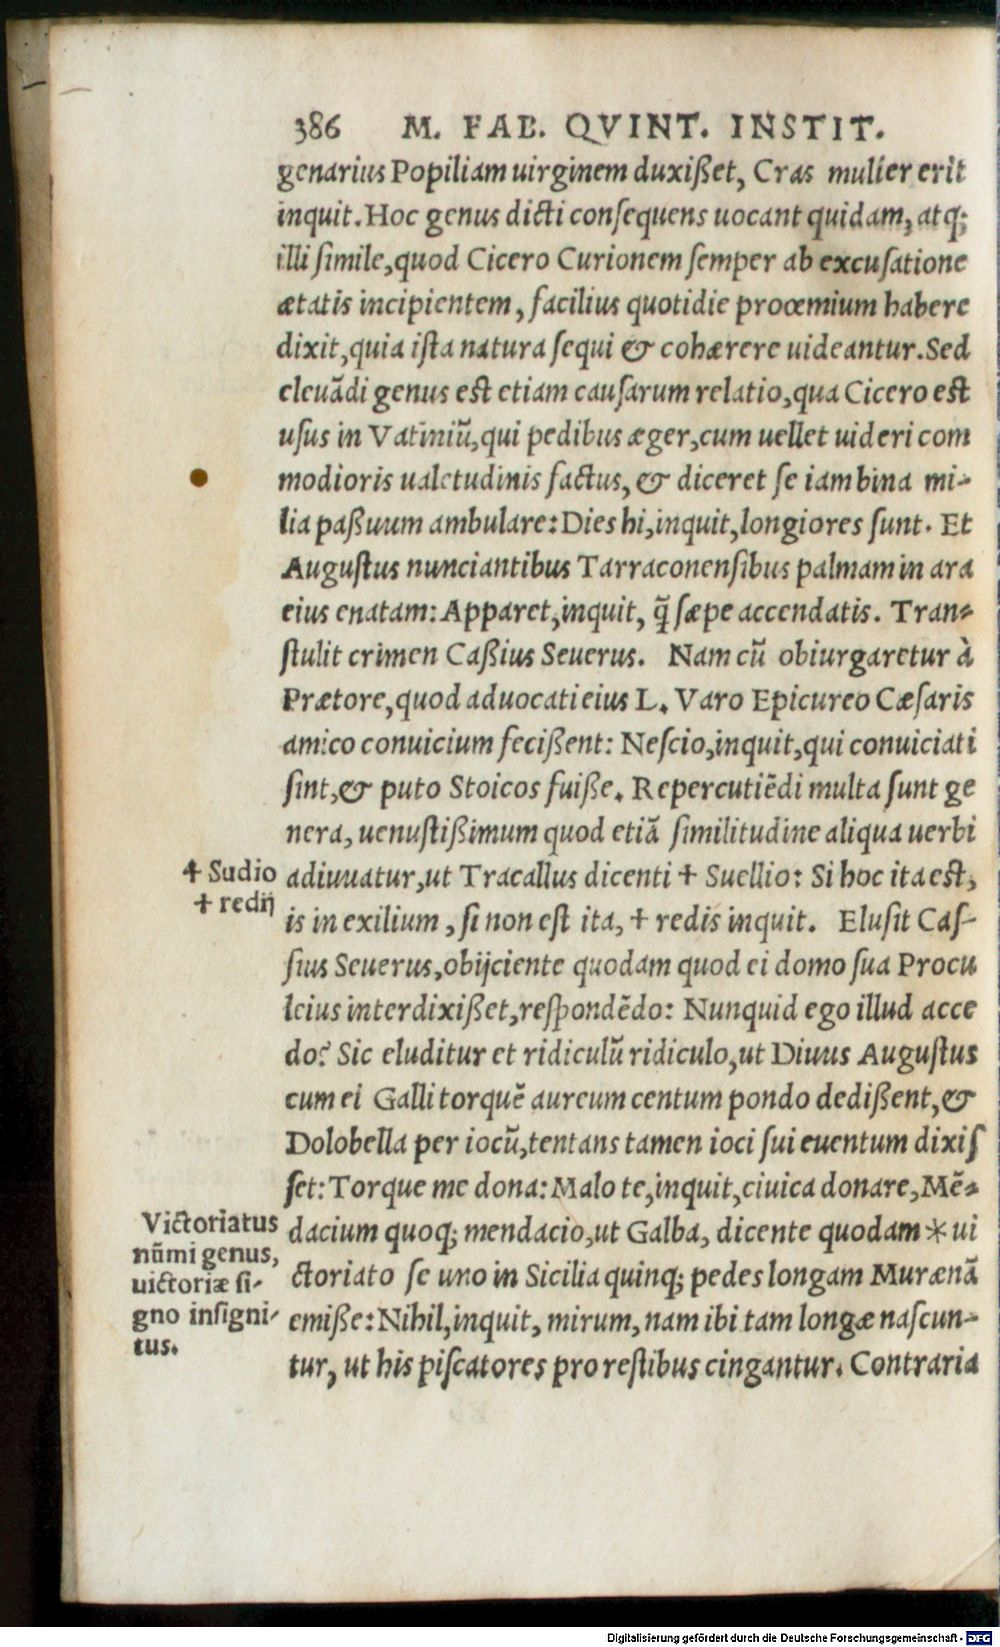 386 M. FAB. QVINT. INSTIT.
genarius Popiliam uirginem duxißet, Cras mulier erit
inquit. Hoc genus dicti conſequens uocant quidam, atq;
illi ſimile, quod Cicero Curionem ſemper ab excuſatione
ætatis incipientem, facilius quotidie proœmium habere
dixit, quia iſta natura ſequi & cohærere uideantur. Sed
eleuãdi genus est etiam cauſarum relatio, qua Cicero est
uſus in Vatiniũ, qui pedibus æger, cum uellet uideri com
modioris ualetudinis factus, & diceret ſe iam bina mi-
lia paßuum ambulare: Dies hi, inquit, longiores ſunt. Et
Auguſtus nunciantibus Tarraconenſibus palmam in ara
eius enatam: Apparet, inquit, q̃ ſæpe accendatis. Tran-
ſtulit crimen Caßius Seuerus. Nam cũ obiurgaretur à
Prætore, quod aduocati eius L. Varo Epicureo Cæſaris
amico conuicium fecißent: Neſcio, inquit, qui conuiciati
ſint, & puto Stoicos fuiße. Repercutiẽdi multa ſunt ge
nera, uenuſtißimum quod etiã ſimilitudine aliqua uerbi
adiuuatur, ut Tracallus dicenti + Suellio: Si hoc ita est,
is in exilium, ſi non est ita, + redis inquit. Eluſit Caſ-
ſius Seuerus, obijciente quodam quod ei domo ſua Procu
leius interdixißet, reſpondẽdo: Nunquid ego illud acce
do? Sic eluditur et ridiculũ ridiculo, ut Diuus Auguſtus
cum ei Galli torquẽ aureum centum pondo dedißent, &
Dolobella per iocũ, tentans tamen ioci ſui euentum dixiſ
ſet: Torque me dona: Malo te, inquit, ciuica donare, Mẽ-
dacium quoq; mendacio, ut Galba, dicente quodam * ui
ctoriato ſe uno in Sicilia quinq; pedes longam Murænã
emiße: Nihil, inquit, mirum, nam ibi tam longæ naſcun-
tur, ut his piſcatores pro reſtibus cingantur. Contraria
+ Sudio
+ redij
Victoriatus
nũmi genus,
uictoriæ ſi-
gno inſigni-
tus.
Digitalisierung gefördert durch die Deutsche Forschungsgemeinschaft - DFG